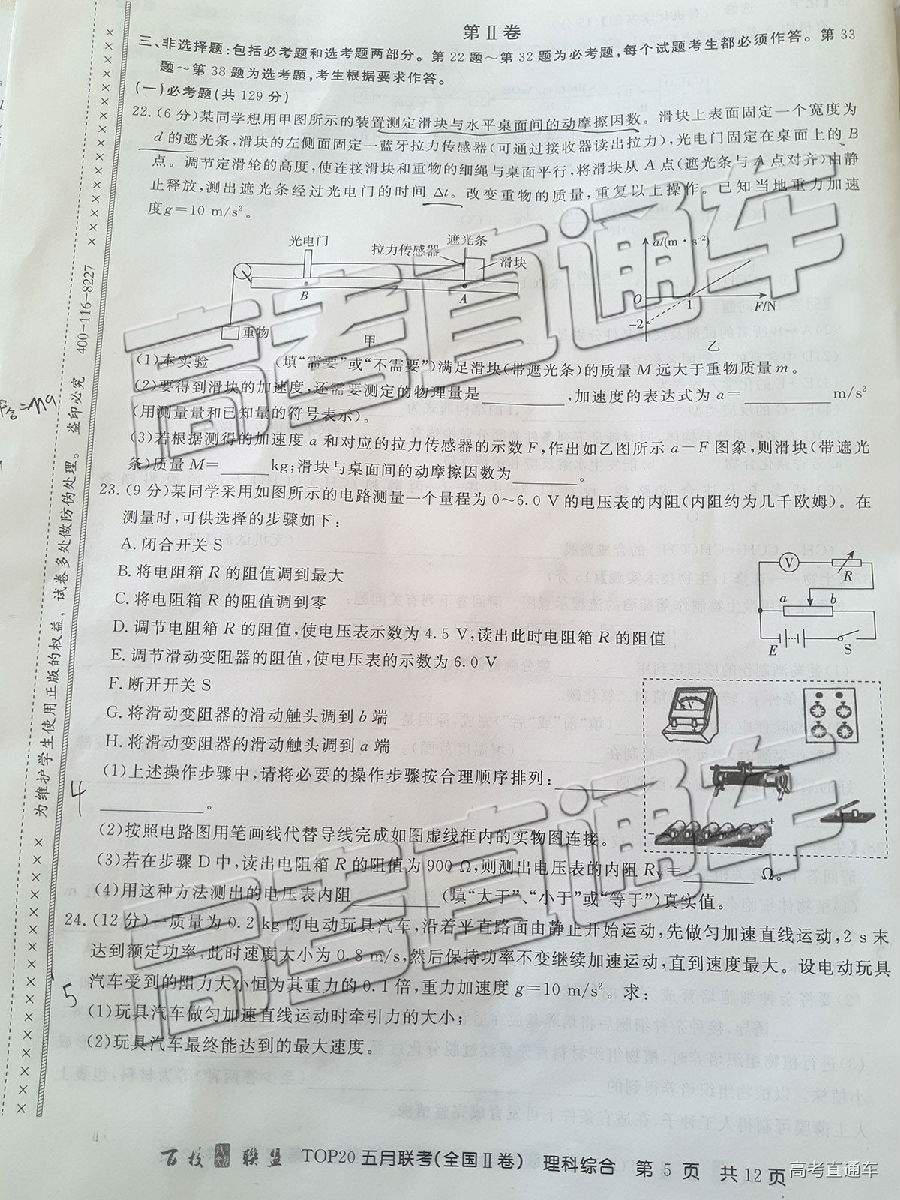 第Ⅱ卷
三、非选择题:包括必考题和选考题两部分。第22题~第32题为必考题,每个试题考生都必须作答。第33
题~第38题为选考题,考生根据要求作答。
(一)必考题(共129分)
22.(6分)某同学想用甲图所示的装置测定滑块与水平桌面间的动摩擦因数。滑块上表面固定一个宽度为
d的遮光条,滑块的左侧面固定一蓝牙拉力传感器(可通过接收器读出拉力),光电门固定在桌面上的B
点。调节定滑轮的高度,使连接滑块和重物的细绳与桌面平行,将滑块从A点(遮光条与A点对齐)由静
止释放,测出遮光条经过光电门的时间Δt。改变重物的质量,重复以上操作。已知当地重力加速
度g=10 m/s²。
光电门
遮光条
拉力传感器
滑块
B
A
重物
甲
a/(m·s⁻²)
O
1
F/N
-2
乙
(1)本实验______(填“需要”或“不需要”)满足滑块(带遮光条)的质量M远大于重物质量m。
(2)要得到滑块的加速度,还需要测定的物理量是________,加速度的表达式为a=________m/s²
(用测量量和已知量的符号表示)。
(3)若根据测得的加速度a和对应的拉力传感器的示数F,作出如乙图所示a-F图象,则滑块(带遮光
条)质量M=______kg;滑块与桌面间的动摩擦因数为______。
23.(9分)某同学采用如图所示的电路测量一个量程为0~6.0 V的电压表的内阻(内阻约为几千欧姆)。在
测量时,可供选择的步骤如下:
A.闭合开关S
B.将电阻箱R的阻值调到最大
C.将电阻箱R的阻值调到零
D.调节电阻箱R的阻值,使电压表示数为4.5 V,读出此时电阻箱R的阻值
E.调节滑动变阻器的阻值,使电压表的示数为6.0 V
F.断开开关S
G.将滑动变阻器的滑动触头调到b端
H.将滑动变阻器的滑动触头调到a端
V
R
a
b
E
S
(1)上述操作步骤中,请将必要的操作步骤按合理顺序排列:______
________。
(2)按照电路图用笔画线代替导线完成如图虚线框内的实物图连接。
(3)若在步骤D中,读出电阻箱R的阻值为900 Ω,则测出电压表的内阻R=______Ω。
(4)用这种方法测出的电压表内阻________(填“大于”、“小于”或“等于”)真实值。
24.(12分)一质量为0.2 kg的电动玩具汽车,沿着平直路面由静止开始运动,先做匀加速直线运动,2 s末
达到额定功率,此时速度大小为0.8 m/s,然后保持功率不变继续加速运动,直到速度最大。设电动玩具
汽车受到的阻力大小恒为其重力的0.1倍,重力加速度g=10 m/s²。求:
(1)玩具汽车做匀加速直线运动时牵引力的大小;
(2)玩具汽车最终能达到的最大速度。
4
5
为维护学生使用正版的权益,试卷多处做防伪处理。 盗印必究 400-116-8227
高考直通车
高考直通车
百校联盟 TOP20五月联考(全国Ⅱ卷) 理科综合 第5页 共12页
高考直通车